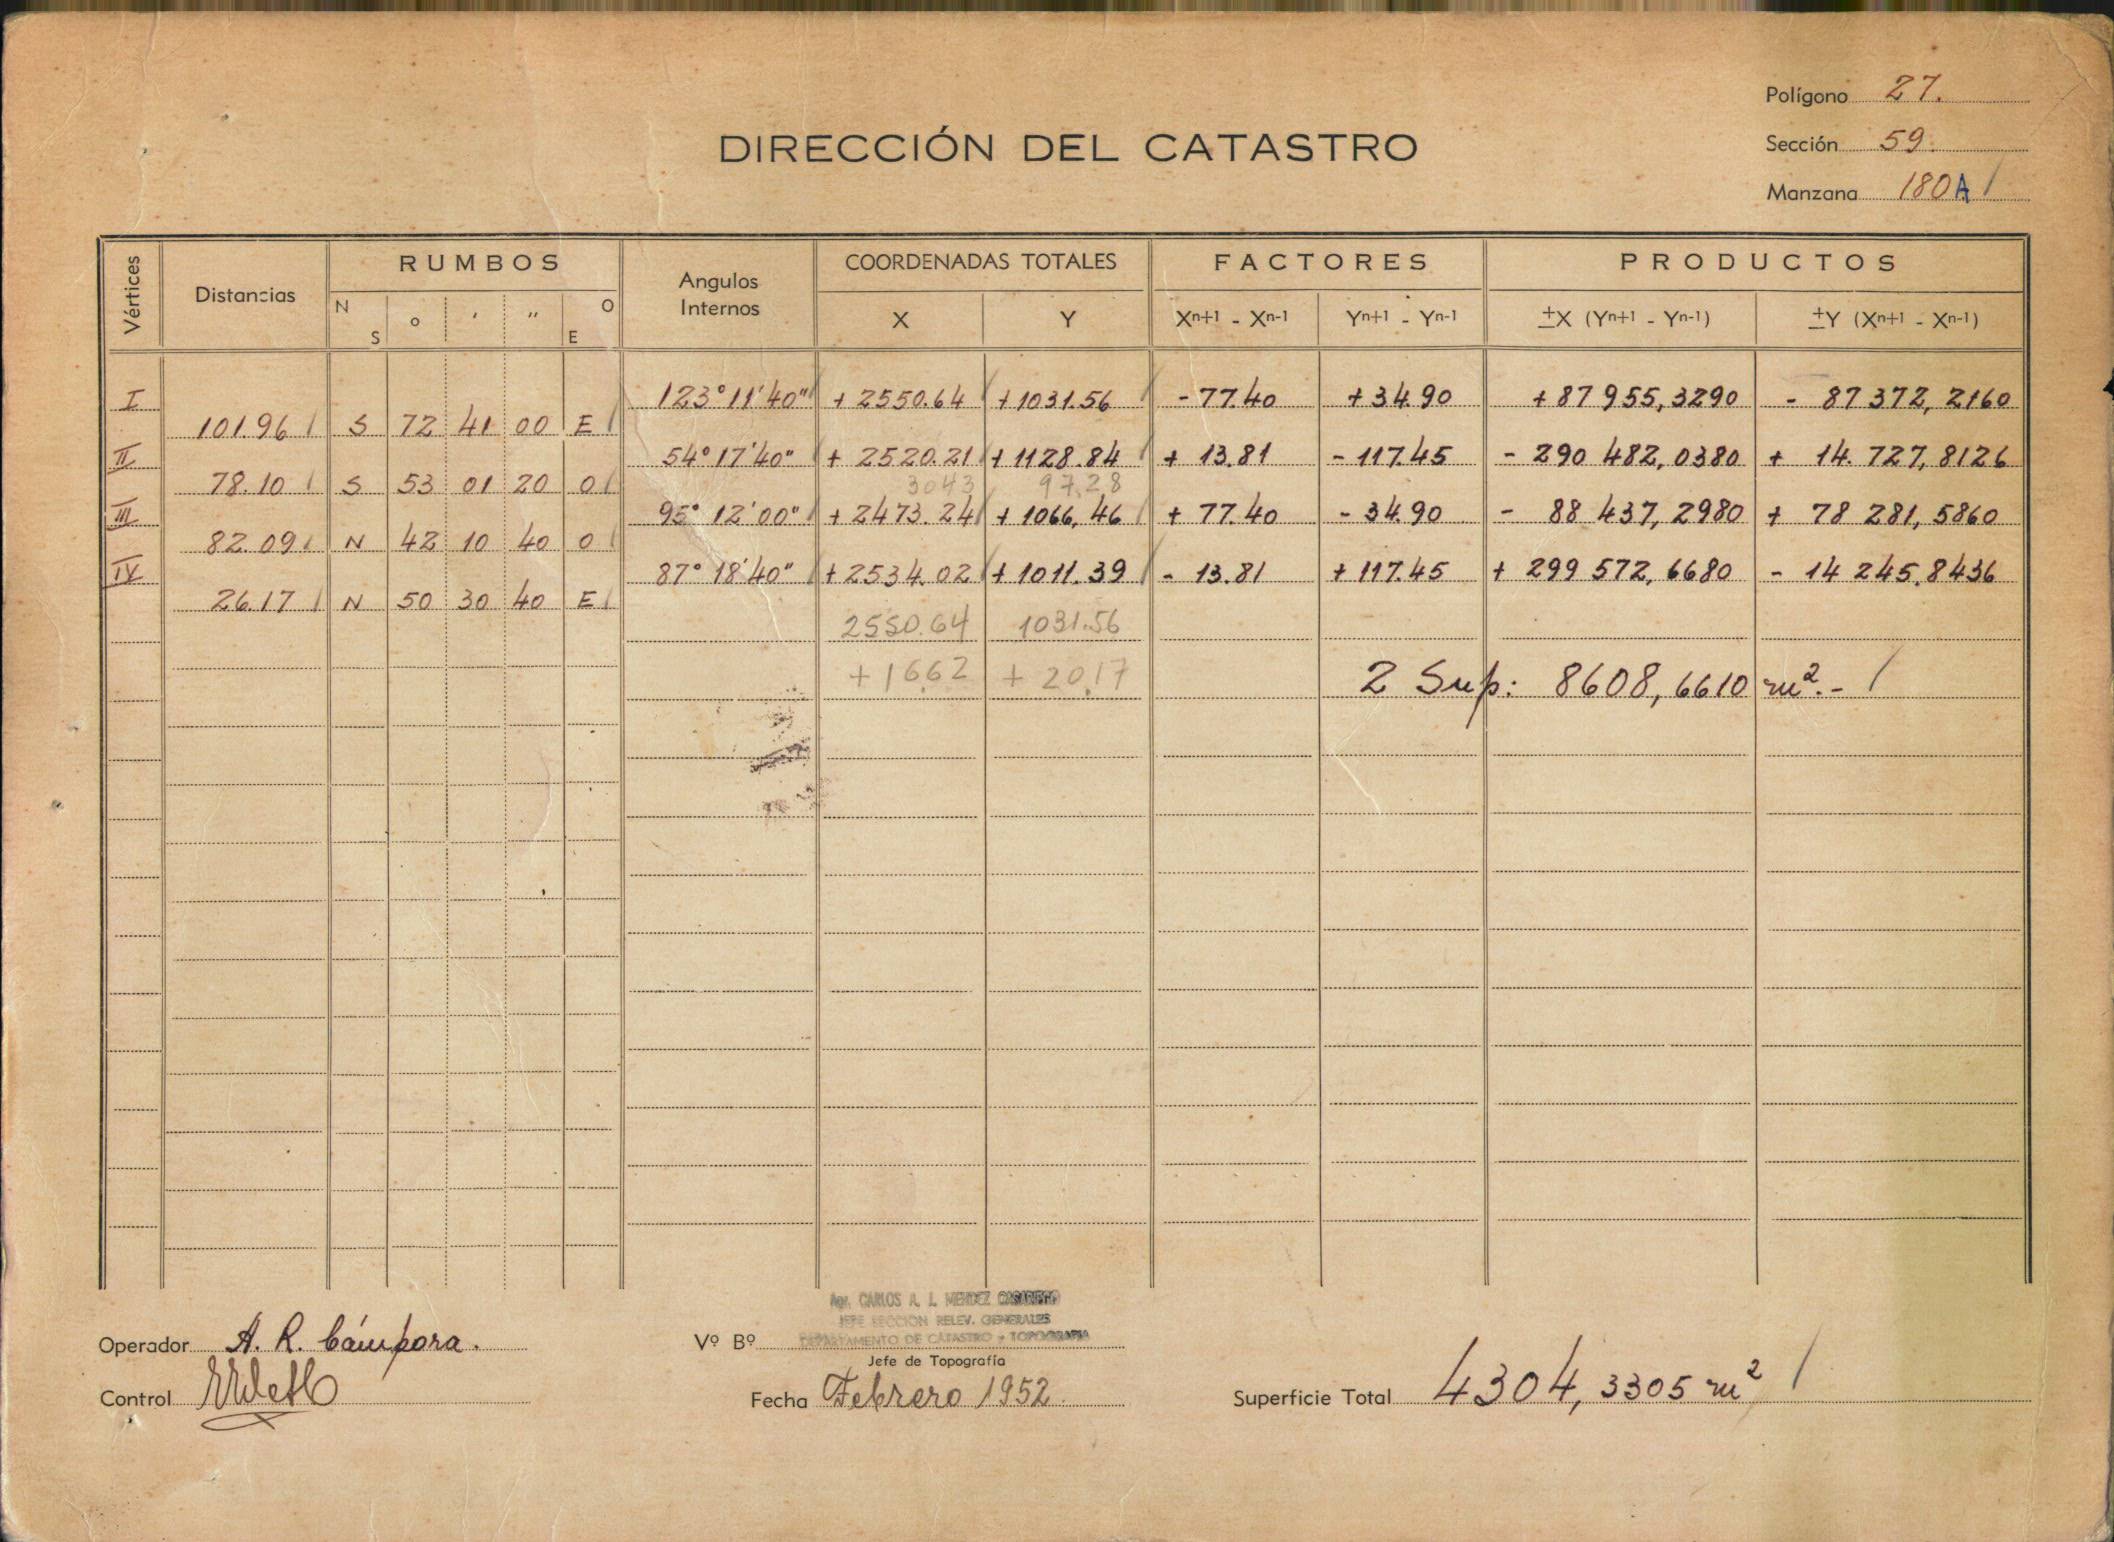 Polígono 27.
DIRECCIÓN DEL CATASTRO
Sección 59.
Manzana 180A /
Vértices
Distancias
RUMBOS
N S o ' '' O E
Angulos Internos
COORDENADAS TOTALES
X Y
FACTORES
Xn+1 - Xn-1 Yn+1 - Yn-1
PRODUCTOS
±X (Yn+1 - Yn-1) ±Y (Xn+1 - Xn-1)
I 123° 11' 40" + 2550.64 +1031.56 - 77.40 + 34.90 + 87 955,3290 - 87 372,2160
101.96 S 72 41 00 E
II 54° 17' 40" + 2520.21 + 1128.84 + 13.81 - 117.45 - 290 482,0380 + 14.727,8126
78.10 S 53 01 20 O 3043 97.28
III 95° 12' 00" + 2473.24 + 1066,46 + 77.40 - 34.90 - 88 437,2980 + 78 281,5860
82.09 N 42 10 40 O
IV 87° 18' 40" + 2534.02 + 1011.39 - 13.81 + 117.45 + 299 572,6680 - 14 245,8436
26.17 N 50 30 40 E
2550.64 1031.56
+ 16.62 + 20.17 2 Sup: 8608,6610 m². - /
Agr. CARLOS A. J. MENDEZ CASARIEGO
JEFE SECCION RELEV. GENERALES
DEPARTAMENTO DE CATASTRO y TOPOGRAFIA
Operador A. R. Cámpora.
Vº Bº
Jefe de Topografía
Control
Fecha Febrero 1952.
Superficie Total 4304,3305 m² /